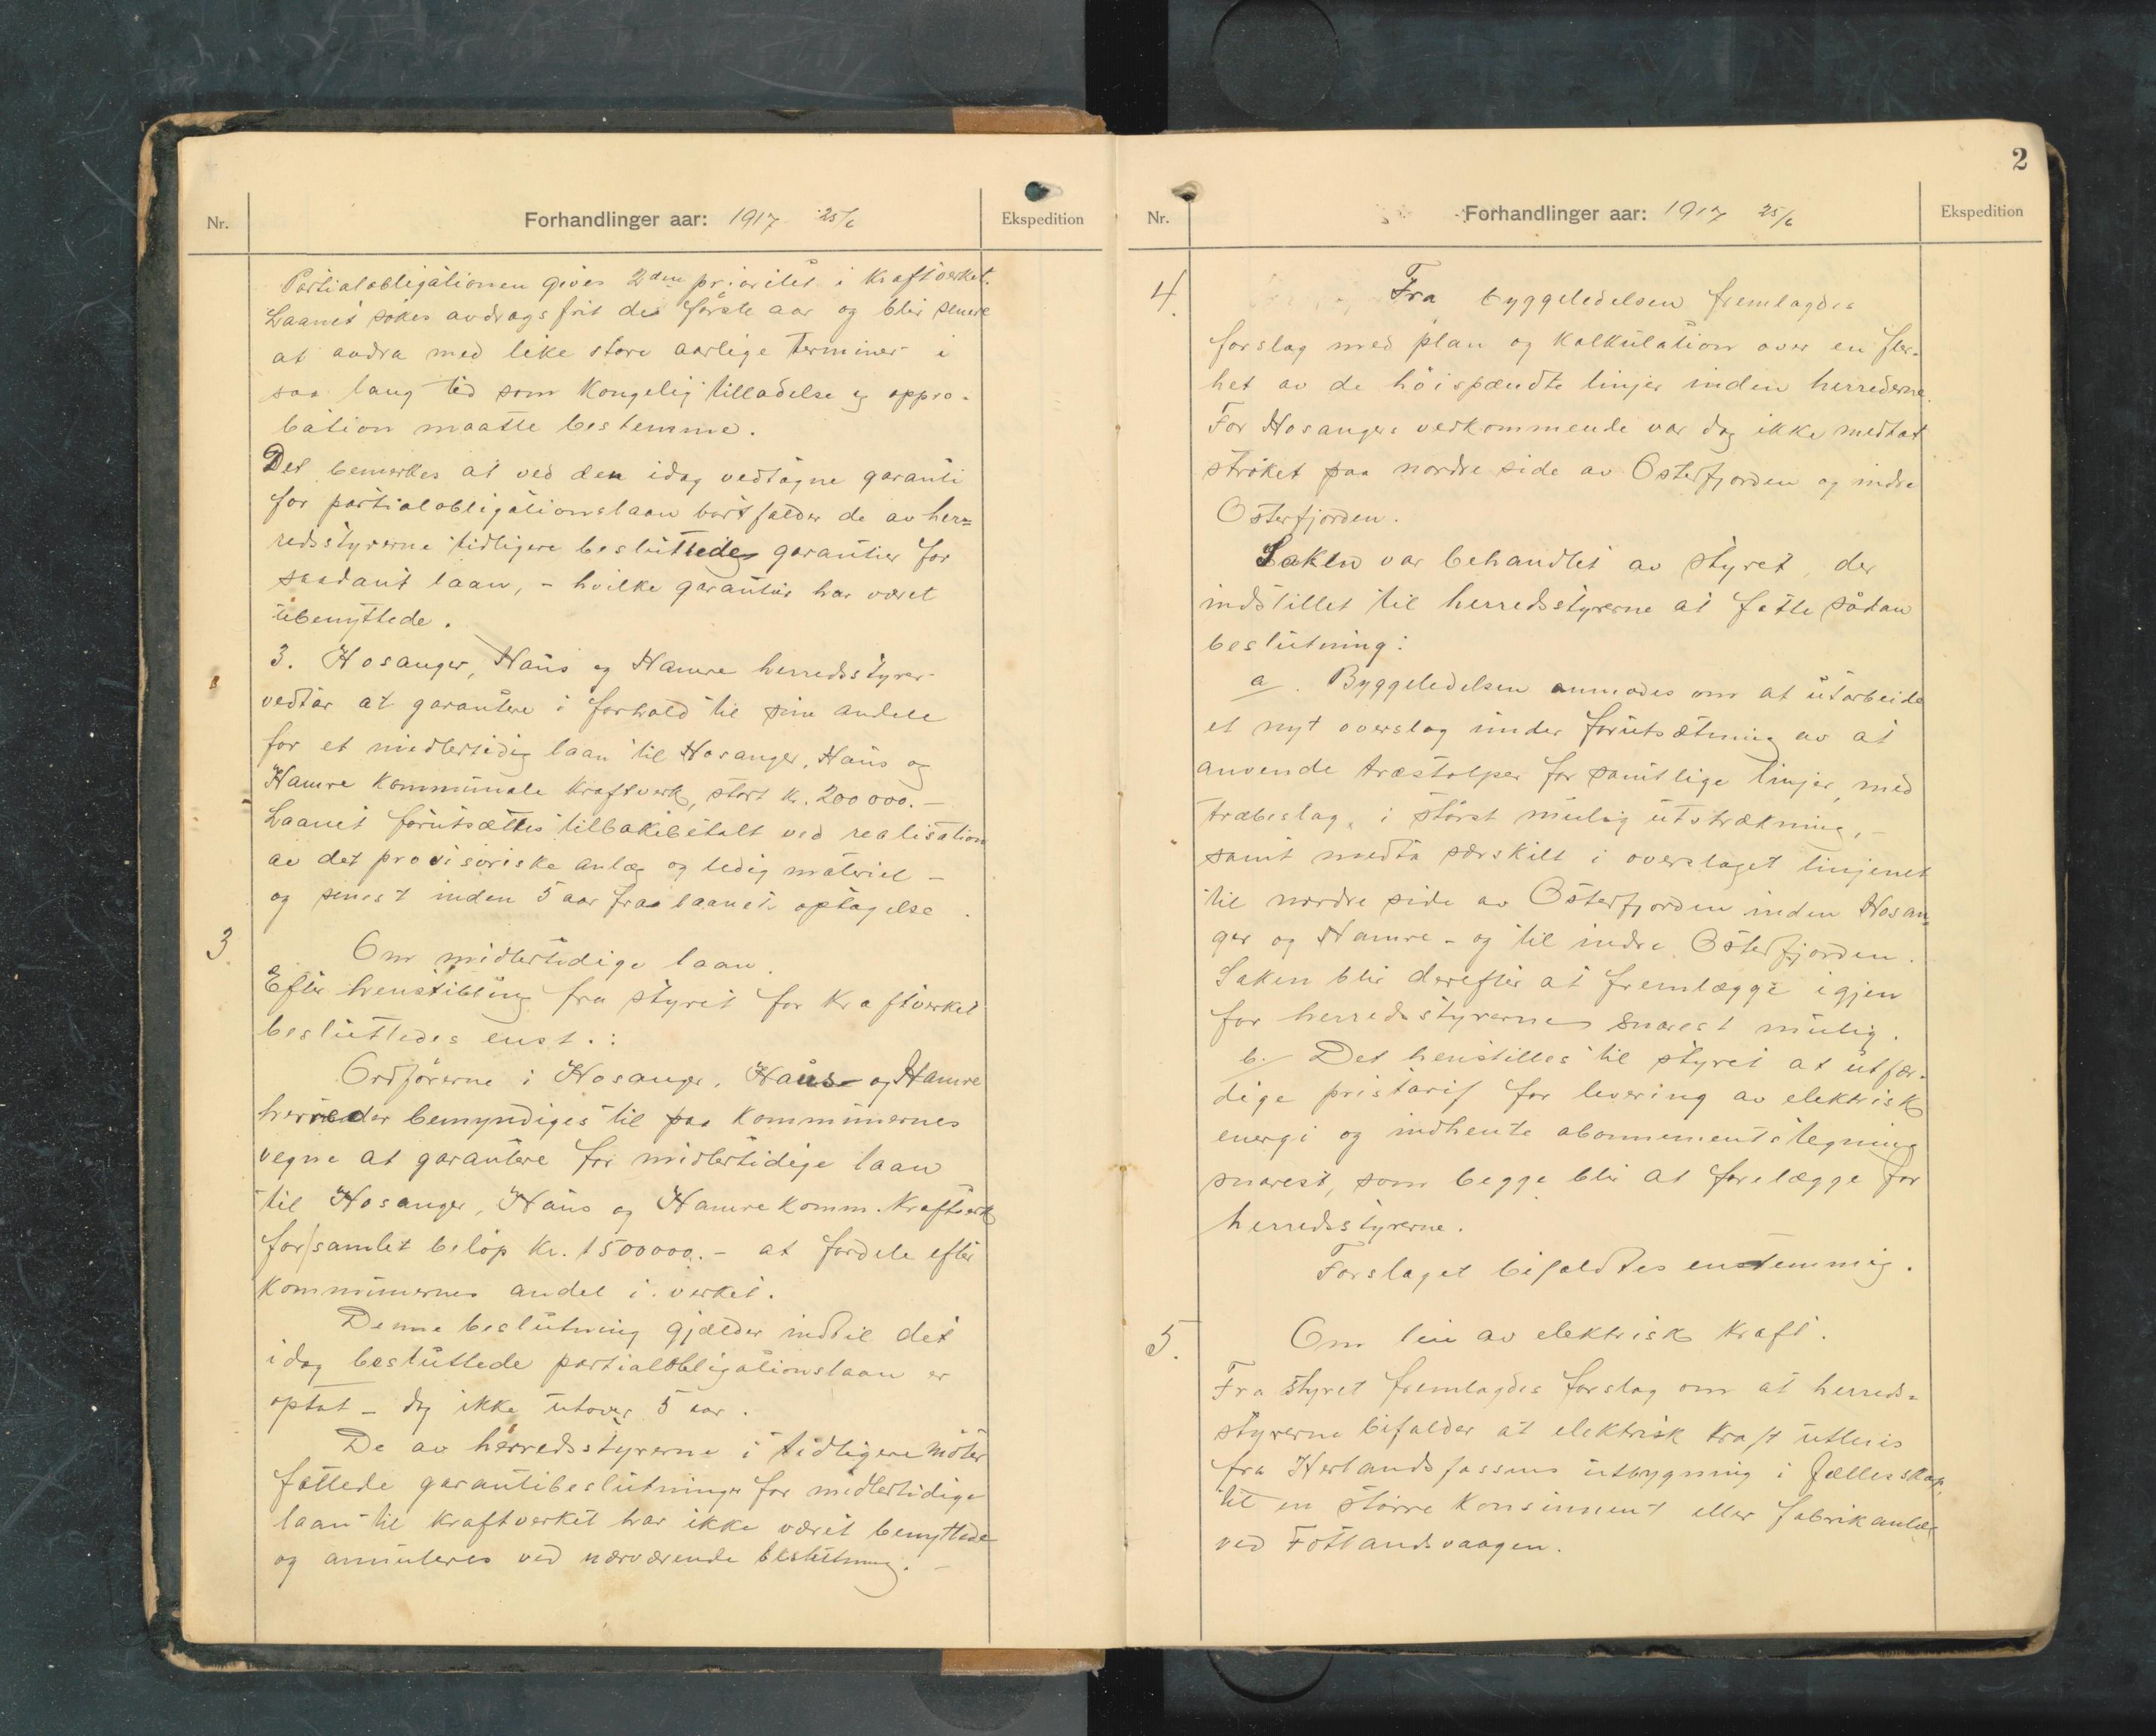 Nr.
Forhandlinger aar: 1917 25/6
Ekspedition
Partialobligationen gives 2den prioritet i Kraftverket.
Laanet søkes avdragsfrit de første aar og blir senere
at avdra med like store aarlige terminer i
saa lang tid som Kongelig tilladelse og appro-
bation maatte bestemme.
Det bemerkes at ved den idag vedtagne garanti
for partialobligationslaan bortfalder de av her=
redsstyrerne tidligere besluttede garantier for
saadant laan, - hvilke garantier har været
ubenyttede.
3. Hosanger, Haus og Hamre herredsstyrer
vedtar at garantere i forhold til sine andele
for et midlertidig laan til Hosanger, Haus og
Hamre Kommunale Kraftverk, stort kr. 200 000.-
Laanet forutsættes tilbakebetalt ved realisation
av det provisoriske anlæg og ledig materiel -
og senest inden 5 aar fra laanets optagelse.
3.
Om midlertidige laan.
Efter henstilling fra styret for Kraftverket
besluttedes enst.:
Ordførerne i Hosanger, Haus og Hamre
herreder bemyndiges til paa Kommunernes
vegne at garantere for midlertidige laan
til Hosanger, Haus og Hamre komm. Kraftverk
for samlet beløp kr. 1500000.- at fordele efter
Kommunernes andel i verket.
Denne beslutning gjælder indtil det
idag besluttede partialobligationslaan er
optat - dog ikke utover 5 aar.
De av herredsstyrerne i tidligere møter
fattede garantibeslutninger for midlertidige
laan til Kraftverket har ikke været benyttede
og annuleres ved nærværende beslutning. -
2
Nr.
Forhandlinger aar: 1917 25/6
Ekspedition
4.
Fra byggeledelsen fremlagdes
forslag med plan og Kalkulation over en fler-
het av de høispændte linjer inden herrederne.
For Hosangers vedkommende var dog ikke medtat
strøket paa nordre side av Osterfjorden og indre
Osterfjorden.
Saken var behandlet av styret, der
indstillet til herredsstyrerne at fatte sådan
beslutning:
a. Byggeledelsen anmodes om at utarbeide
et nyt overslag under forutsætning av at
anvende træstolper for samtlige linjer, med
træbeslag, i størst mulig utstrækning, -
samt medta særskilt i overslaget linjenet
til nordre side av Osterfjorden inden Hosan-
ger og Hamre - og til indre Osterfjorden.
Saken blir derefter at fremlægge igjen
for herredsstyrerne snarest mulig.
b. Det henstilles til styret at utfær-
dige pristarif for levering av elektrisk
energi og indhente abonnementstegning
snarest, som begge blir at forelægge for
herredsstyrerne.
Forslaget bifaldtes enstemmig.
5.
Om leie av elektrisk Kraft.
Fra styret fremlagdes forslag om at herreds=
styrerne bifalder at elektrisk Kraft utleies
fra Herlandsfossens utbygning i Fællesskap
til en større Konsument eller fabrikanlæg
ved Fotlandsvaagen.